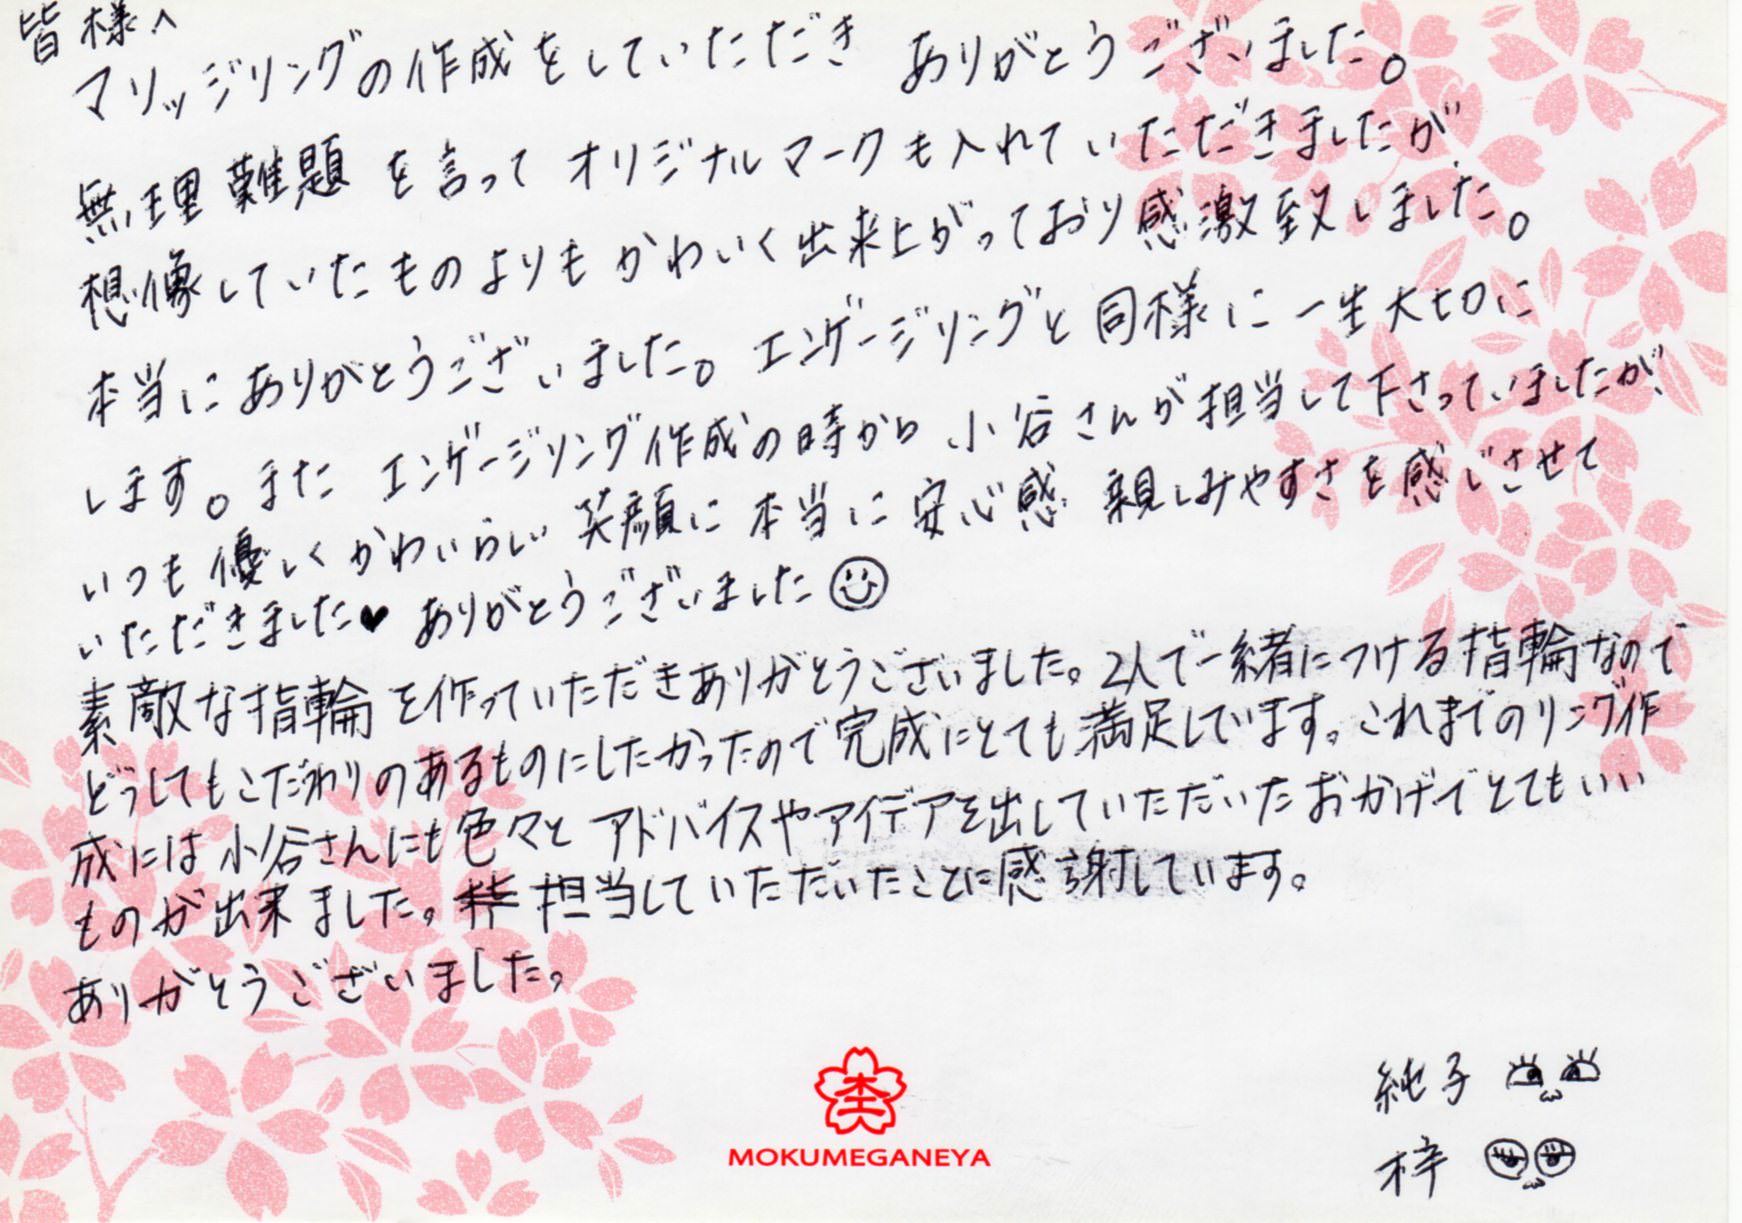 皆様へ
マリッジリングの作成をしていただき ありがとうございました。
無理難題を言って オリジナルマークも入れていただきましたが、
想像していたものよりもかわいく出来上がっており感激致しました。
本当にありがとうございました。エンゲージリングと同様に一生大切に
します。また エンゲージリング作成の時から 小谷さんが担当して下さっていましたが、
いつも優しくかわいらしい笑顔に本当に安心感 親しみやすさを感じさせて
いただきました♥ ありがとうございました☺
素敵な指輪を作っていただきありがとうございました。2人で一緒につける指輪なので
どうしてもこだわりのあるものにしたかったので完成にとても満足しています。これまでのリング作
成には小谷さんにも色々とアドバイスやアイデアを出していただいたおかげでとてもいい
ものが出来ました。担当していただいたことに感謝しています。
ありがとうございました。
純子
梓
MOKUMEGANEYA